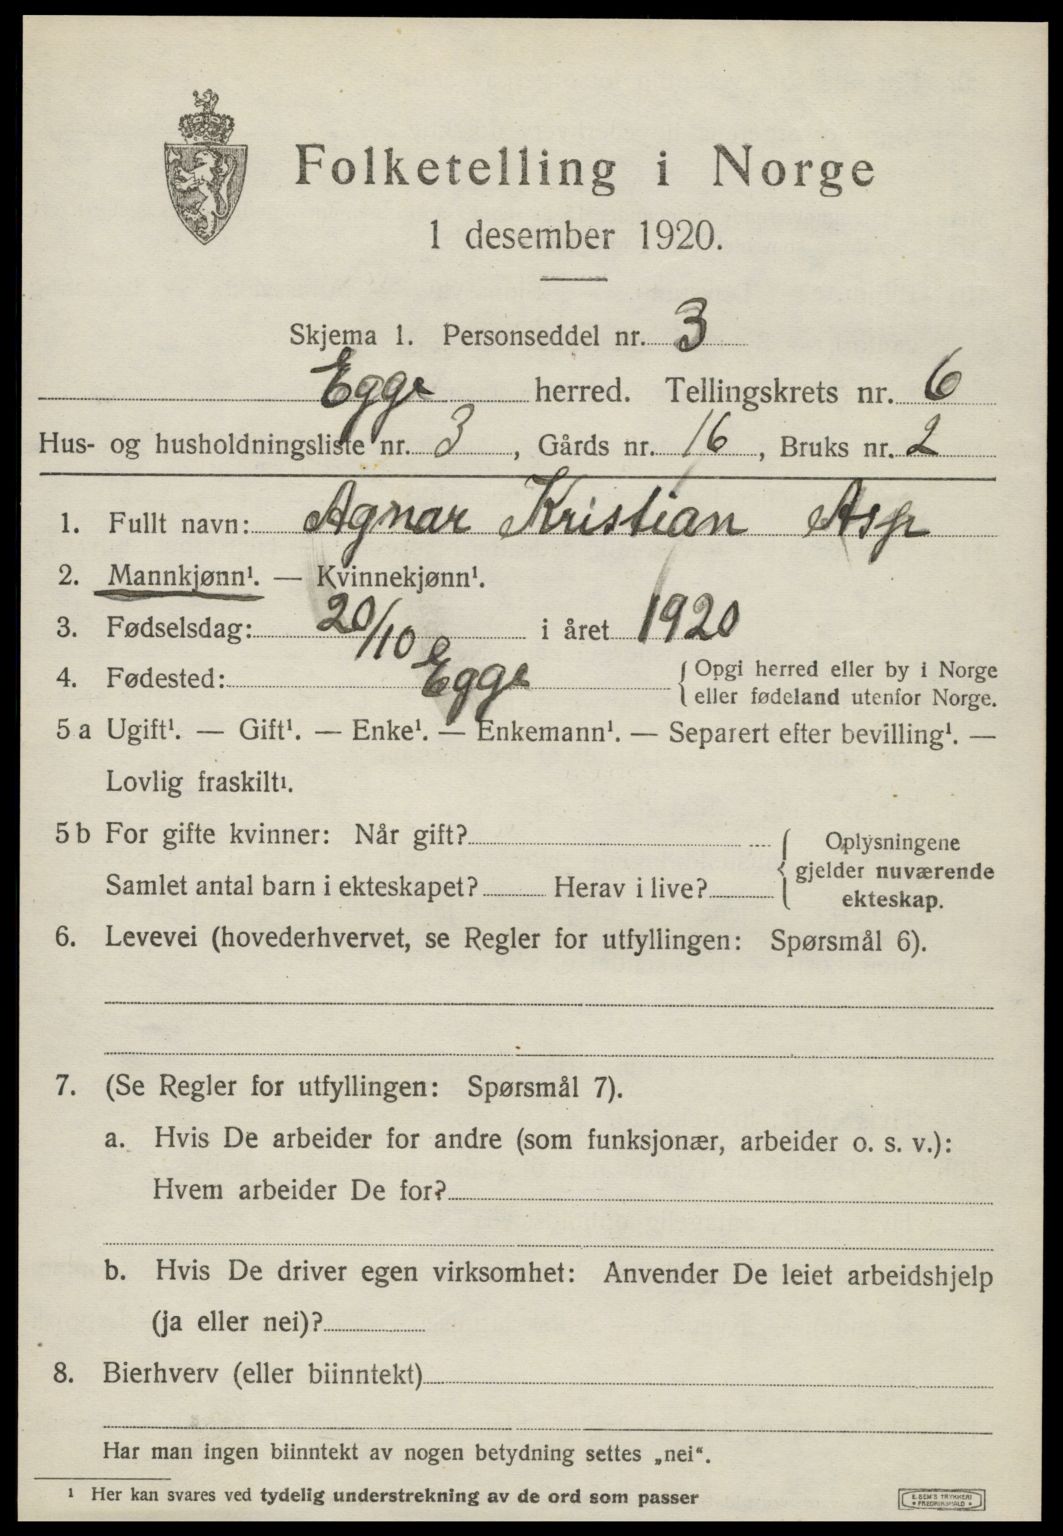 Folketelling i Norge
1 desember 1920.
Skjema 1. Personseddel nr. 3
Egge herred. Tellingskrets nr. 6
Hus- og husholdningsliste nr. 3, Gårds nr. 16, Bruks nr. 2
1. Fullt navn: Agnar Kristian Asp
2. Mannkjønn¹. — Kvinnekjønn¹.
3. Fødselsdag: 20/10 i året 1920
4. Fødested: Egge { Opgi herred eller by i Norge
eller fødeland utenfor Norge.
5 a Ugift¹. — Gift¹. — Enke¹. — Enkemann¹. — Separert efter bevilling¹. —
Lovlig fraskilt¹.
5 b For gifte kvinner: Når gift? { Oplysningene
gjelder nuværende
Samlet antal barn i ekteskapet? Herav i live? ekteskap.
6. Levevei (hovederhvervet, se Regler for utfyllingen: Spørsmål 6).
7. (Se Regler for utfyllingen: Spørsmål 7).
a. Hvis De arbeider for andre (som funksjonær, arbeider o. s. v.):
Hvem arbeider De for?
b. Hvis De driver egen virksomhet: Anvender De leiet arbeidshjelp
(ja eller nei)?
8. Bierhverv (eller biinntekt)
Har man ingen biinntekt av nogen betydning settes „nei“.
¹ Her kan svares ved tydelig understrekning av de ord som passer
E. SEM'S TRYKKERI
FREDRIKSHALD